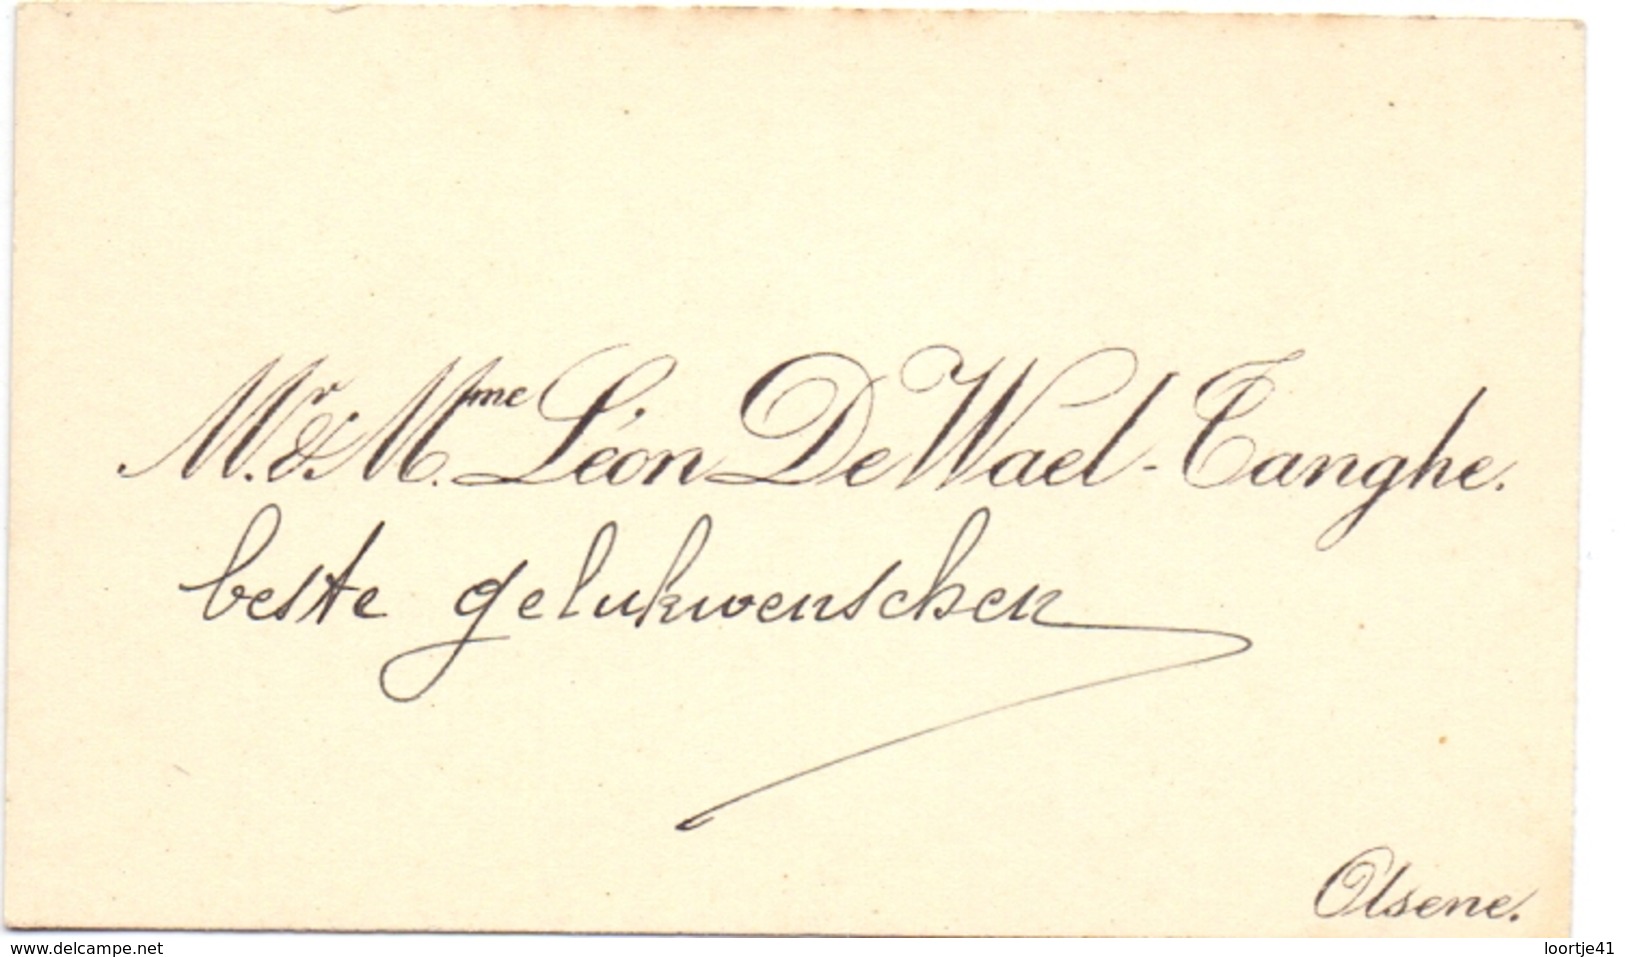 Mr. & Mme. Léon De Wael-Tanghe.
beste gelukwenschen
Olsene.
www.delcampe.net
loortje41